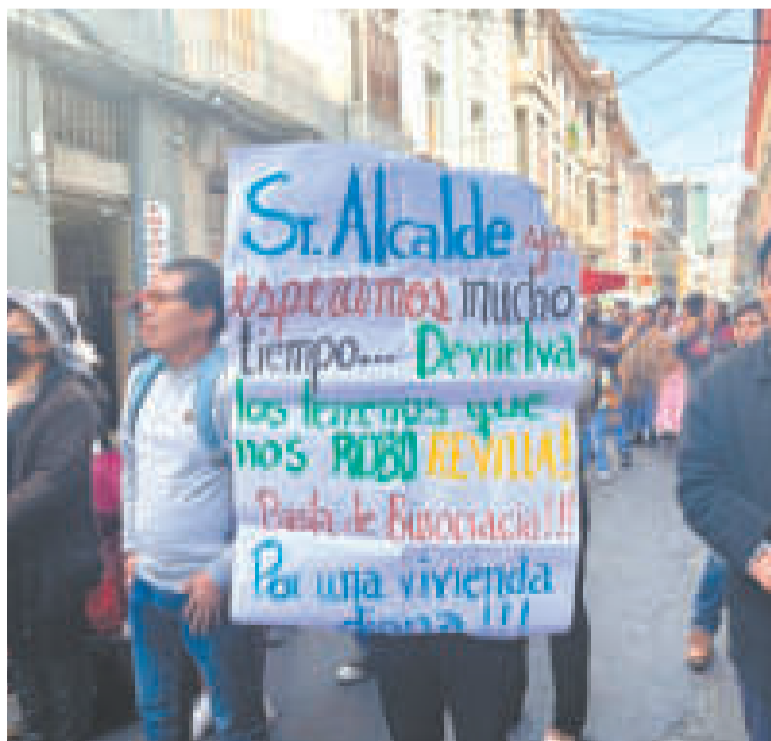 Sr. Alcalde ya
esperamos mucho
tiempo... Devuelva
los terrenos que
nos ROBO REVILLA!
Basta de Burocracia!!!
Por una vivienda
digna!!!